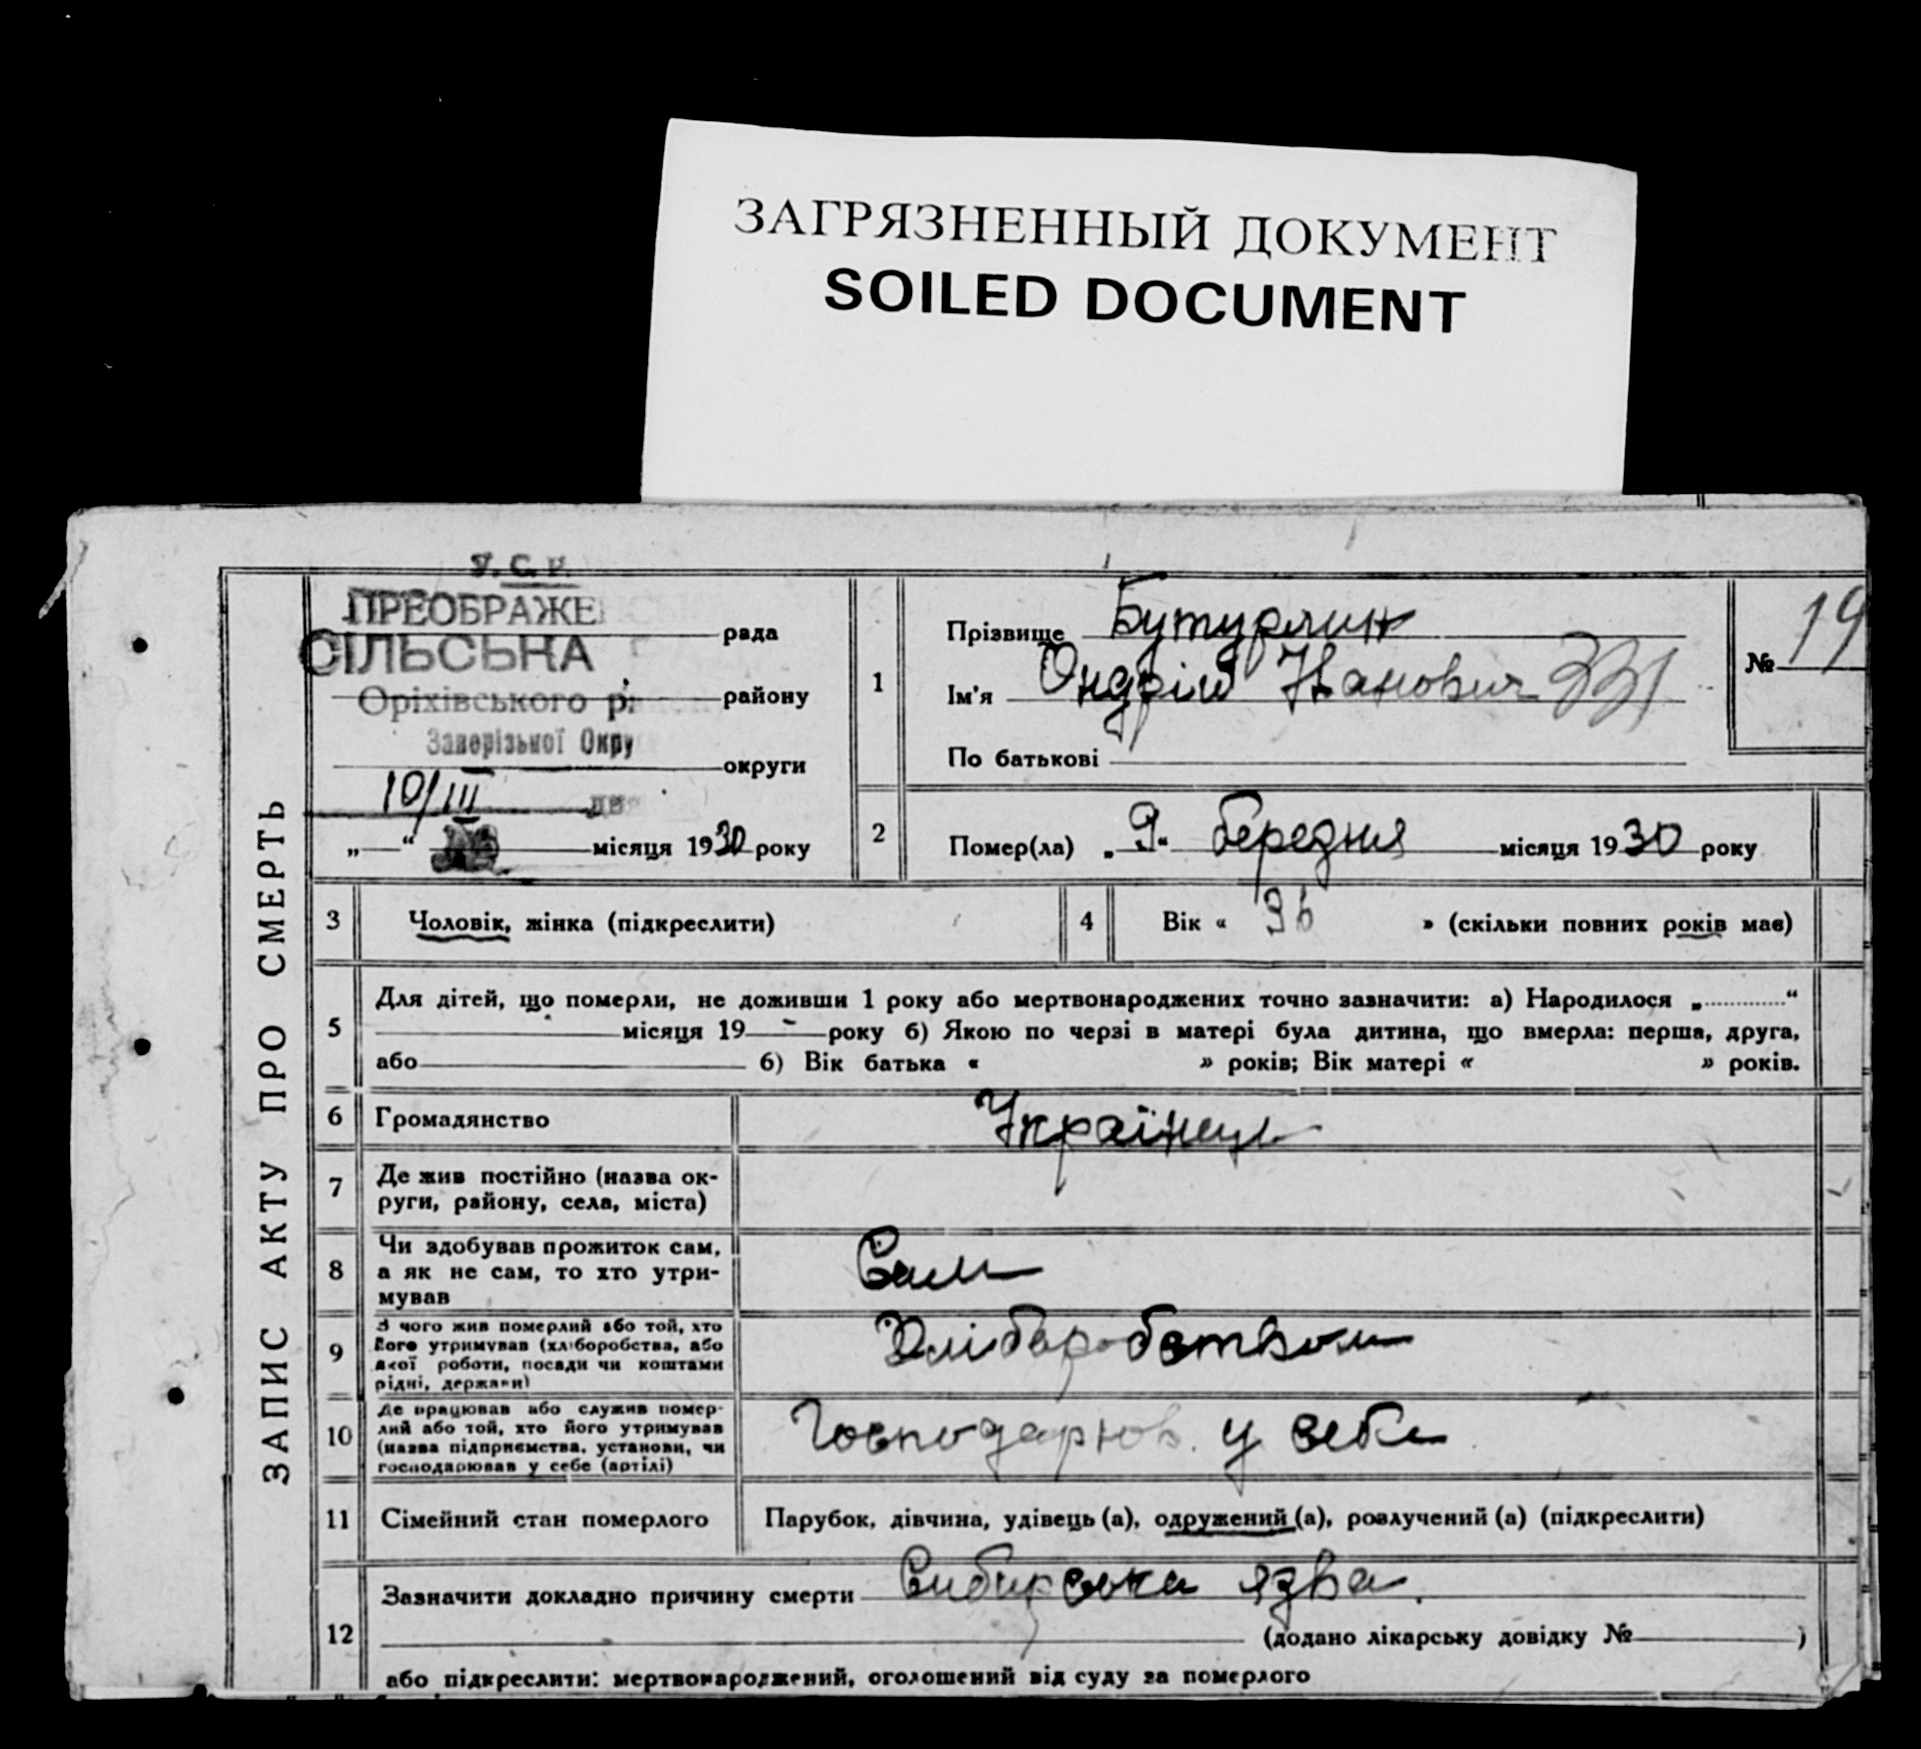 ЗАГРЯЗНЕННЫЙ ДОКУМЕНТ
SOILED DOCUMENT
ЗАПИС АКТУ ПРО СМЕРТЬ
У. С. Р.
ПРЕОБРАЖЕ
рада
СІЛЬСЬКА
Оріхівського р. району
Запорізької Окру
округи
10/III дня
„ “ місяця 1930 року
1
Прізвище Бутурлин
Ім'я Ондрій Іванович
По батькові
№ 19
2
Помер(ла) „9“ березня місяця 1930 року
3 Чоловік, жінка (підкреслити)
4 Вік « 36 » (скільки повних років має)
5 Для дітей, що померли, не доживши 1 року або мертвонароджених точно зазначити: а) Народилося „ “
місяця 19 року б) Якою по черзі в матері була дитина, що вмерла: перша, друга,
або б) Вік батька « » років; Вік матері « » років.
6 Громадянство Українець
7 Де жив постійно (назва ок-
руги, району, села, міста)
8 Чи здобував прожиток сам,
а як не сам, то хто утри-
мував
Сам
9 З чого жив померлий або той, хто
його утримував (хліборобства, або
якої роботи, посади чи коштами
рідні, держави)
Хліборобством
10 Де працював або служив помер-
лий або той, хто його утримував
(назва підприємства, установи, чи
господарював у себе (артілі)
Господарюв. у себе
11 Сімейний стан померлого Парубок, дівчина, удівець (а), одружений (а), розлучений (а) (підкреслити)
12 Зазначити докладно причину смерти Сибирська язва.
(додано лікарську довідку № )
або підкреслити: мертвонароджений, оголошений від суду за померлого